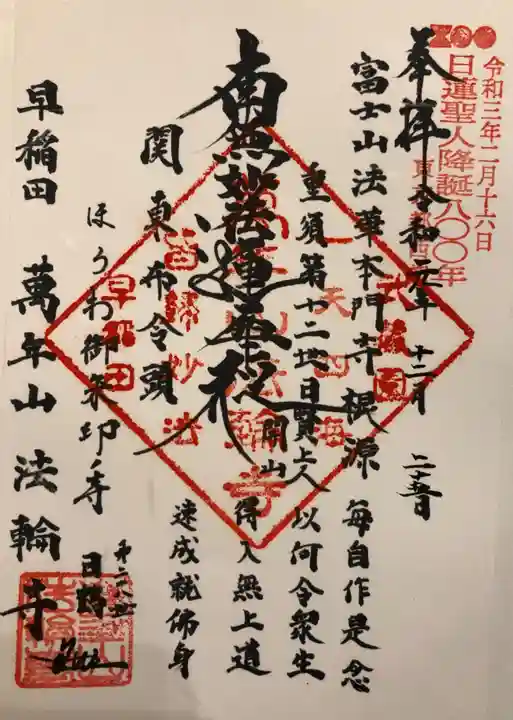 令和三年二月十六日
日蓮聖人降誕八〇〇年
奉拝 令和元年 十二月 二十五日
富士山法華本門寺根源
毎自作是念
重須第十二世日賢上人
以何令衆生
開山
得入無上道
南無妙法蓮華経
速成就佛身
関東布令頭
ほうわ御朱印寺
早稲田 萬年山 法輪寺
一天四海
皆歸妙法
早稲田